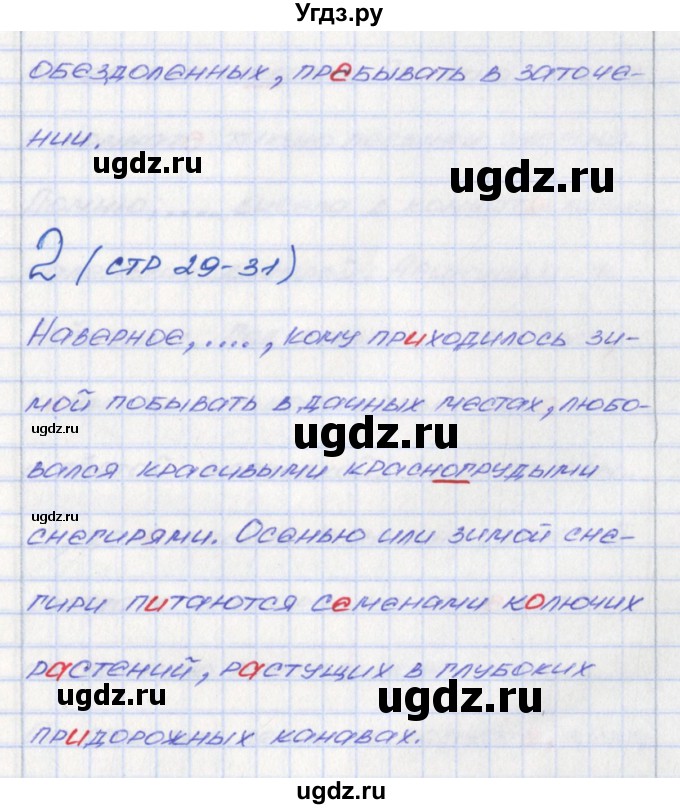 Угдз.ру
обездоленных, пребывать в заточе-
нии.
ugdz.ru
ugdz.ru
2 (стр 29-31)
Наверное, ...., кому приходилось зи-
мой побывать в дачных местах, любо-
ugdz.ru
ugdz.ru
вался красивыми краснопрудыми
ugdz.ru
снегирями. Осенью или зимой сне-
гири питаются семенами колючих
растений, растущих в глубоких
ugdz.ru
ugdz.ru
придорожных канавах.
ugdz.ru
ugdz.ru